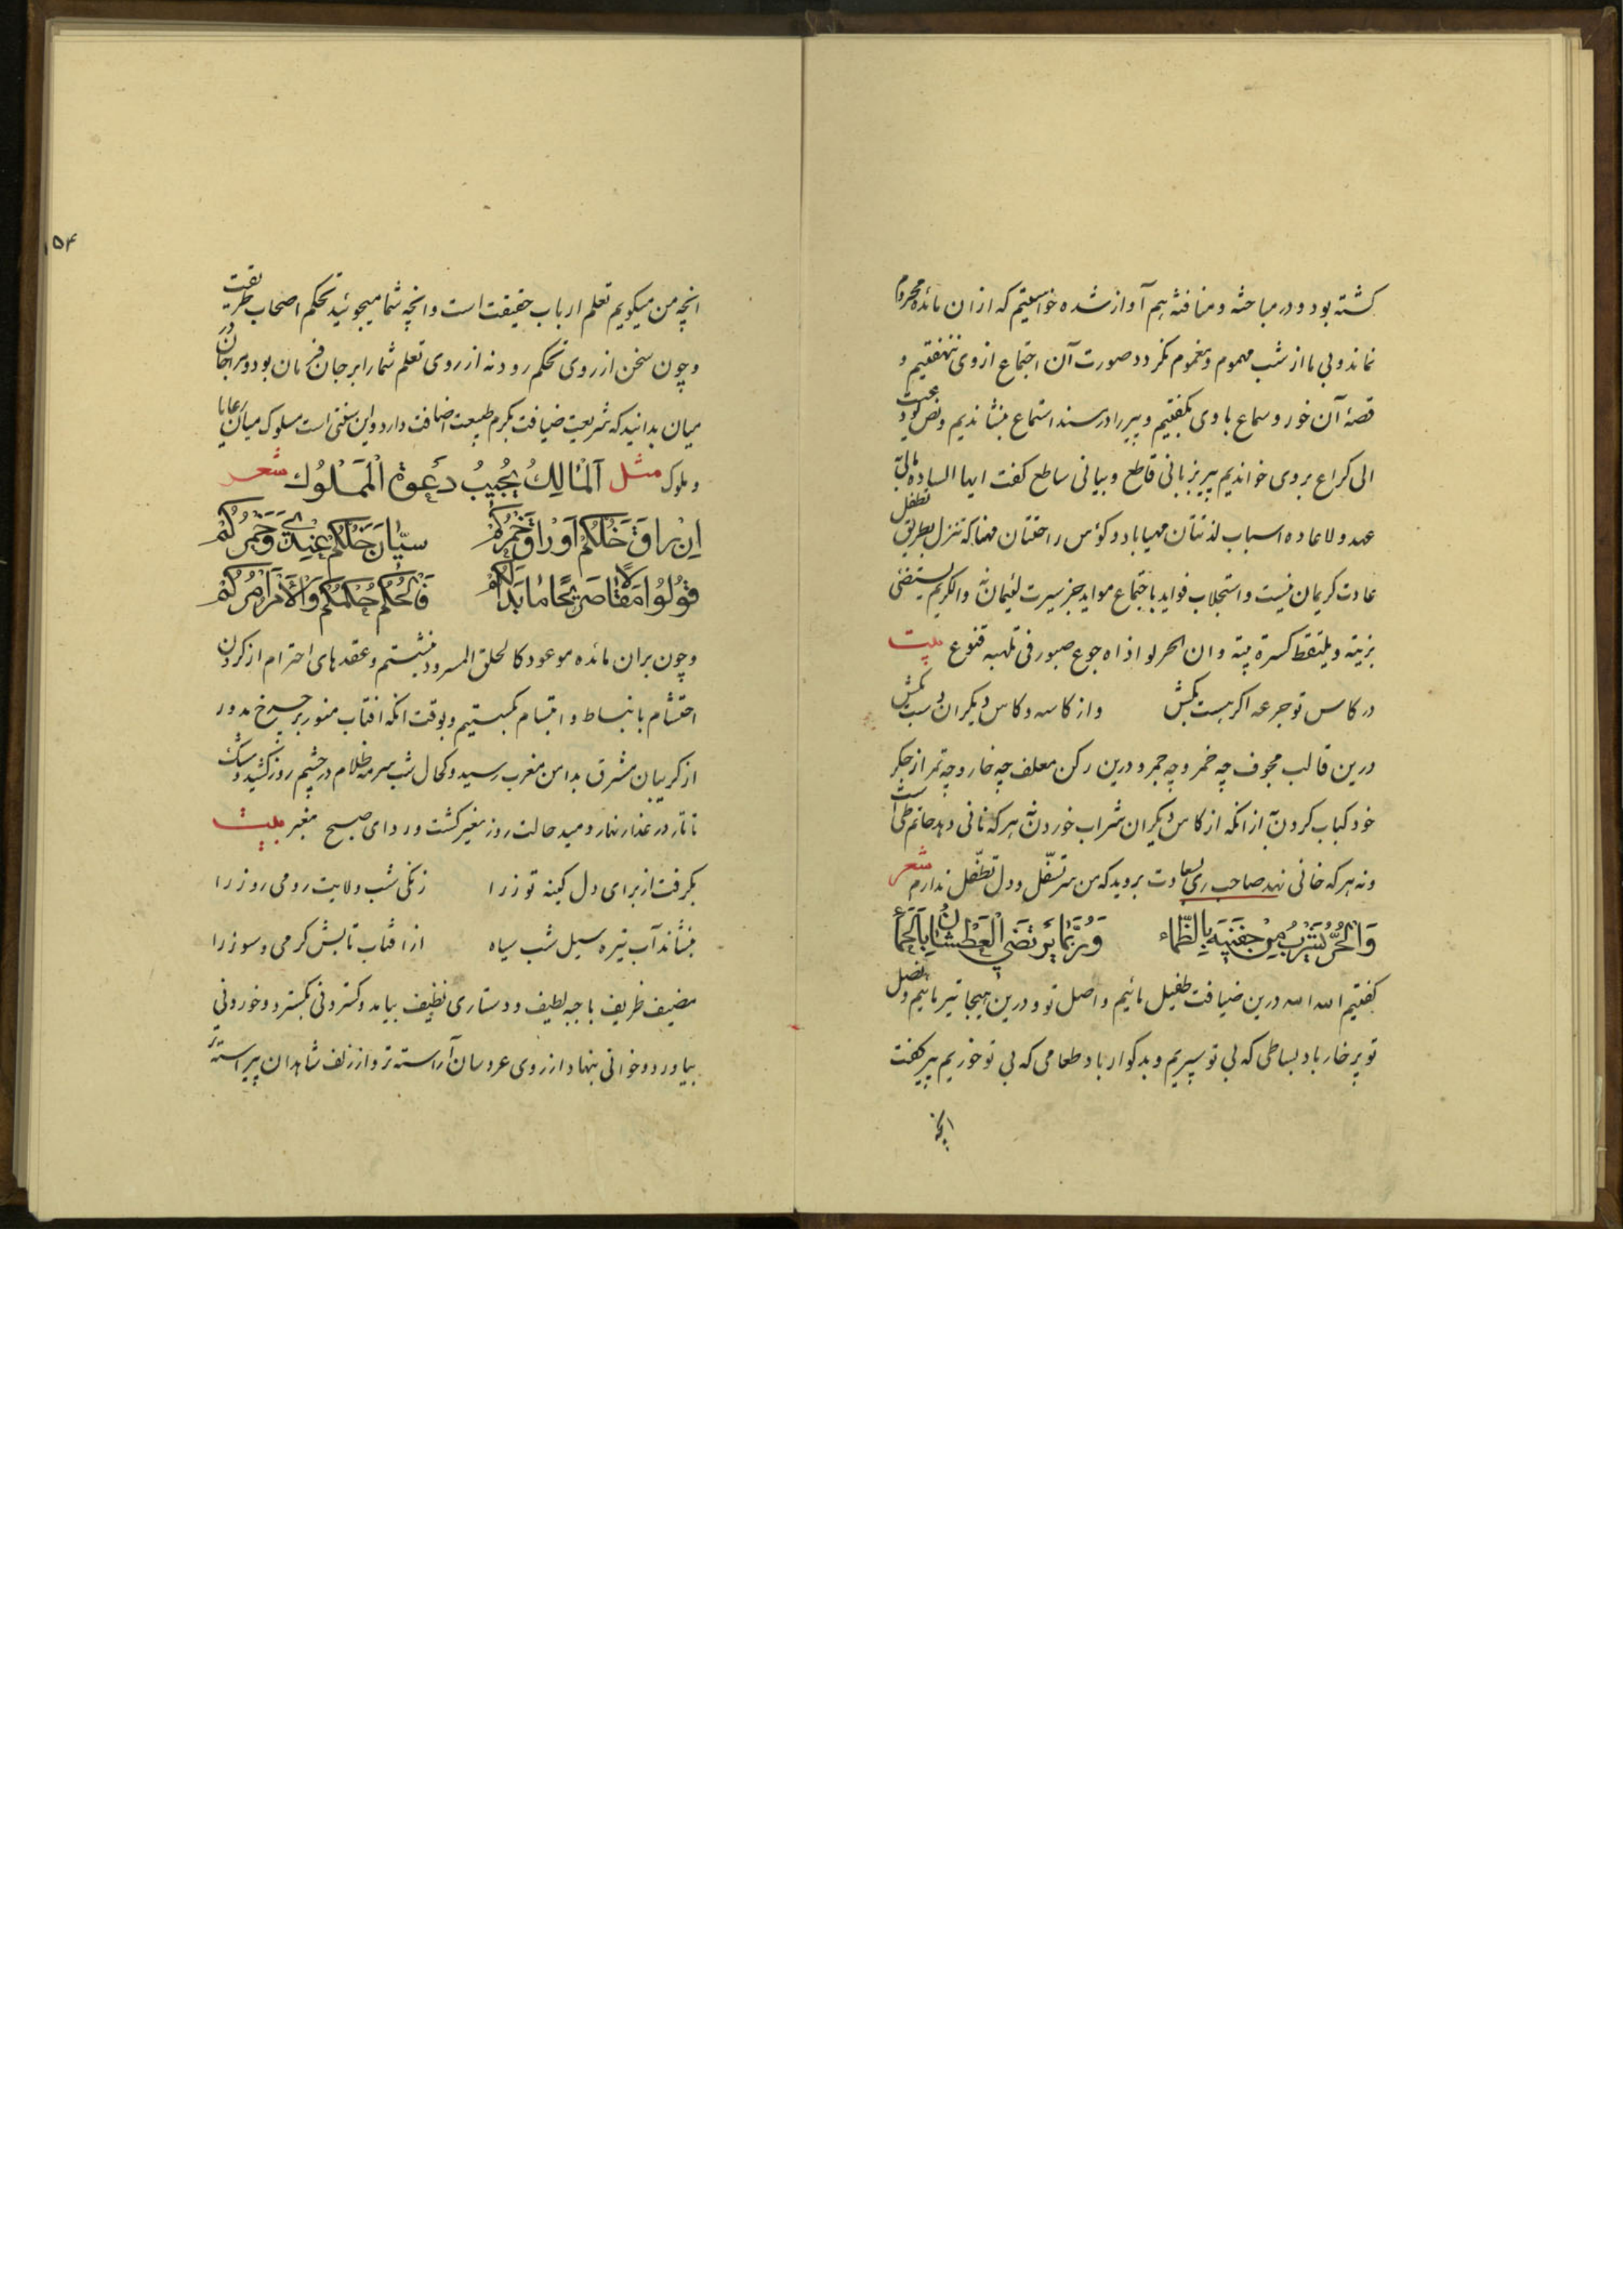 کشته بود و در مباحثه و منافثه هم آواز شده خواستیم که از ان مائده محروم
نماند و بی ما از شب مهموم و مغموم نکردد صورت آن اجتماع از وی ننهفتیم و
قصۀ آن خور و سماع با وی بکفتیم و پیر را در مسند استماع بنشاندیم و نص لو دعیت
الی کراع بر وی خواندیم پیر بزبانی قاطع و بیانی ساطع کفت ایها الساده بالیۀ
عهد و لا عاده اسباب لذتتان مهیا باد و کؤس راحتتان مهنا که تنزل بطریق تطفل
عادت کریمان نیست و استجلاب فواید باجتماع مواید جز سیرت لئیمان نه والکریم یستضئ
بزیته و یلتقط کسرة بیته و ان الحر لو اذاه جوع صبور فی تلهبه قنوع بیت
در کاس تو جرعه اکر هست بکش
و از کاسه و کاس دیکران دست بکش
درین قالب مجوف چه خمر و چه جمر و درین رکن معلف چه خار و چه تمر از جکر
خود کباب کردن به از انکه از کاس دیکران شراب خوردن نه هر که نانی دهد حاتم طی است
و نه هر که خانی نهد صاحب ری بسعادت بروید که من سر تسفّل و دل تطفّل ندارم شعر
وَالْحُرُّ يَشْرَبُ مِنْ جَفْنَيْهِ بِالظَّمَاءِ
وَرُبَّمَا يَرْتَضِي الْعَطْشَانُ بِالْحَمَأِ
کفتیم الله الله درین ضیافت طفیل مائیم و اصل تو و درین هیجا تیر مائیم و نصل
تو پر خار باد بساطی که بی تو سپریم و بد کوار باد طعامی که بی تو خوریم پیر کفت
انچه
۱۵۴
انچه من میکویم تعلم ارباب حقیقت است و انچه شما میجوئید تحکم اصحاب طریقت
و چون سخن از روی تحکم رود نه از روی تعلم شما را بر جان فرمان بود و مرا جان در
میان بدانید که شریعت ضیافت بکرم طبیعت اضافت دارد و این سنتی است مسلوک میان رعایا
و ملوک مثل اَلْمَالِكُ يُجِيبُ دَعْوَةَ الْمَمْلُوكِ شعر
اِنْ رَاقَ خَلُّكُمْ اَوْ رَاقَ خَمْرُكُمْ
سِيَّانَ خَلُّكُمْ عِنْدِي وَخَمْرُكُمْ
قُولُوا مَقَالًا صَرِيحًا مَا بَدَا لَكُمْ
فَالْحُكْمُ حُكْمُكُمْ وَالْأَمْرُ اَمْرُكُمْ
و چون بران مائده موعود کالحلق المسرود بنشستیم و عقدهای احترام از کردن
احتشام بانبساط و ابتسام بکسستیم و بوقت انکه افتاب منور بر چرخ مدور
از کریبان مشرق بدامن مغرب رسید و کحال شب سرمه ظلام در چشم روز کشید و مشک
تاتار در عذار نهار دمید حالت روز مغیر کشت و ردای صبح مغبر بیت
بکرفت از برای دل کینه توز را
زنکی شب ولایت رومی روز را
بنشاند آب تیره سیل شب سیاه
از افتاب تابش کرمی و سوز را
مضیف ظریف با جبه لطیف و دستاری نظیف بیامد و کستردنی بکسترد و خوردنی
بیاورد و خوانی بنهاد از روی عروسان آراسته تر و از زلف شاهدان پیراسته